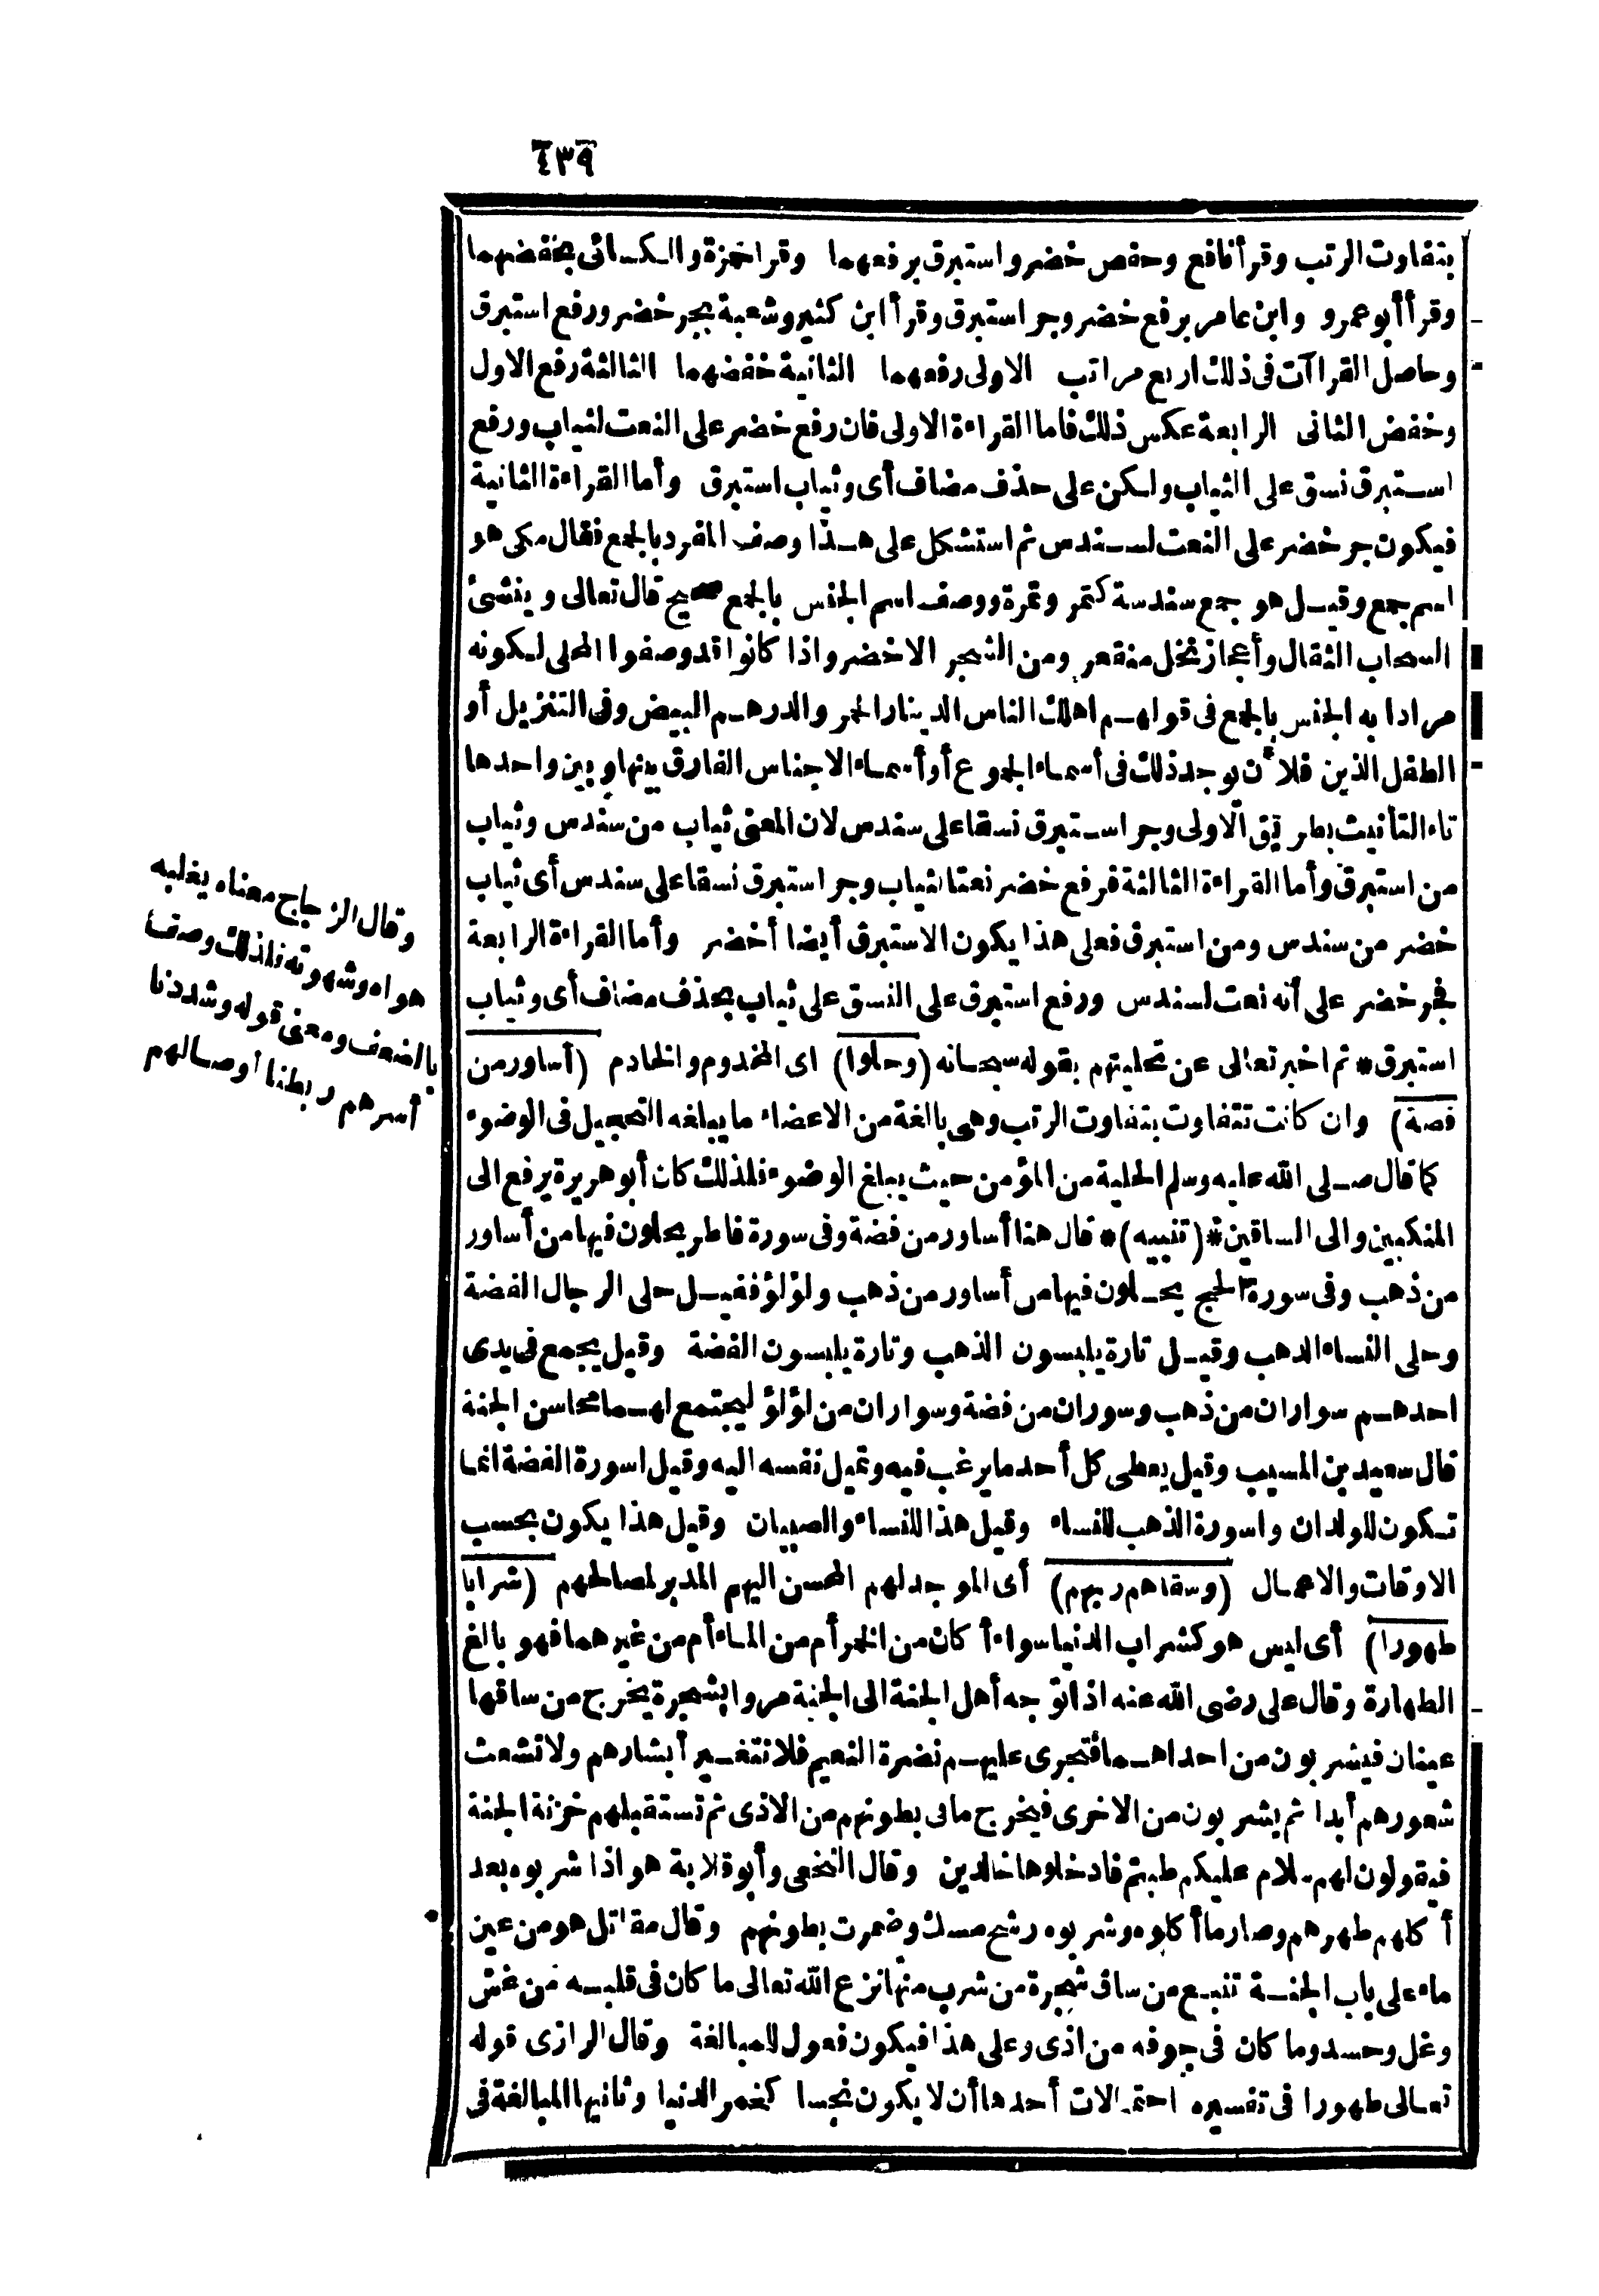 ٤٣٩
بتفاوت الرتب وقرأ نافع وحفص خضر واستبرق برفعهما وقرأ حمزة والكسائى بخفضهما
وقرأ أبو عمرو وابن عامر برفع خضر وجر استبرق وقرأ ابن كثير وشعبة بجر خضر ورفع استبرق
وحاصل القراآت فى ذلك أربع مراتب الاولى رفعهما الثانية خفضهما الثالثة رفع الاول
وخفض الثانى الرابعة عكس ذلك فاما القراءة الاولى فان رفع خضر على النعت لثياب ورفع
استبرق نسق على الثياب ولكن على حذف مضاف أى وثياب استبرق وأما القراءة الثانية
فيكون جر خضر على النعت لسندس ثم استشكل على هذا وصف المفرد بالجمع فقال مكى هو
اسم جمع وقيل هو جمع سندسة كتمر وتمرة ووصف اسم الجنس بالجمع صحيح قال تعالى وينشئ
السحاب الثقال وأعجاز نخل منقعر ومن الشجر الاخضر واذا كانوا قد وصفوا المحلى لكونه
مرادا به الجنس بالجمع فى قولهم اهلك الناس الدينار الحمر والدرهم البيض وفى التنزيل أو
الطفل الذين فلأن يوجد ذلك فى أسماء الجموع أو أسماء الاجناس الفارق بينها وبين واحدها
تاء التأنيث بطريق الاولى وجر استبرق نسقا على سندس لان المعنى ثياب من سندس وثياب
من استبرق وأما القراءة الثالثة فرفع خضر نعتا لثياب وجر استبرق نسقا على سندس أى ثياب
خضر من سندس ومن استبرق فعلى هذا يكون الاستبرق أيضا أخضر وأما القراءة الرابعة
فجر خضر على أنه نعت لسندس ورفع استبرق على النسق على ثياب بحذف مضاف أى وثياب
استبرق * ثم اخبر تعالى عن تحليتهم بقوله سبحانه (وحلوا) اى المخدوم والخادم (أساور من
فضة) وان كانت تتفاوت بتفاوت الرتب وهى بالغة من الاعضاء ما يبلغه التحجيل فى الوضوء
كما قال صلى الله عليه وسلم الحلية من المؤمن حيث يبلغ الوضوء فلذلك كان أبو هريرة يرفع الى
المنكبين والى الساقين * (تنبيه) * قال هنا أساور من فضة وفى سورة فاطر يحلون فيها من أساور
من ذهب وفى سورة الحج يحلون فيها من أساور من ذهب ولؤلؤ فقيل حلى الرجال الفضة
وحلى النساء الذهب وقيل تارة يلبسون الذهب وتارة يلبسون الفضة وقيل يجمع فى يدى
احدهم سواران من ذهب وسوران من فضة وسواران من لؤلؤ ليجتمع لهم محاسن الجنة
قال سعيد بن المسيب وقيل يعطى كل أحد ما يرغب فيه وتميل نفسه اليه وقيل اسورة الفضة انما
تكون للولدان واسورة الذهب للنساء وقيل هذا للنساء والصبيان وقيل هذا يكون بحسب
الاوقات والاعمال (وسقاهم ربهم) أى الموجد لهم المحسن اليهم المدبر لمصالحهم (شرابا
طهورا) أى ليس هو كشراب الدنيا سواء أكان من الخمر أم من الماء أم من غيرهما فهو بالغ
الطهارة وقال على رضى الله عنه اذا توجه أهل الجنة الى الجنة مروا بشجرة يخرج من ساقها
عينان فيشربون من احداهما فتجرى عليهم نضرة النعيم فلا تتغير أبشارهم ولا تشعث
شعورهم أبدا ثم يشربون من الاخرى فيخرج ما فى بطونهم من الاذى ثم تستقبلهم خزنة الجنة
فيقولون لهم سلام عليكم طبتم فادخلوها خالدين وقال النخعى وأبو قلابة هو اذا شربوه بعد
أكلهم طهرهم وصار ما أكلوه وشربوه رشح مسك وضمرت بطونهم وقال مقاتل هو من عين
ماء على باب الجنة تنبع من ساق شجرة من شرب منها نزع الله تعالى ما كان فى قلبه من غش
وغل وحسد وما كان فى جوفه من اذى وعلى هذا فيكون فعول للمبالغة وقال الرازى قوله
تعالى طهورا فى تفسيره احتمالات أحدها أن لا يكون نجسا كخمر الدنيا وثانيها المبالغة فى
وقال الزجاج معناه يغلبه
هواه وشهوته فلذلك وصف
بالضعف ومعنى قوله وشددنا
أسرهم ربطنا أوصالهم